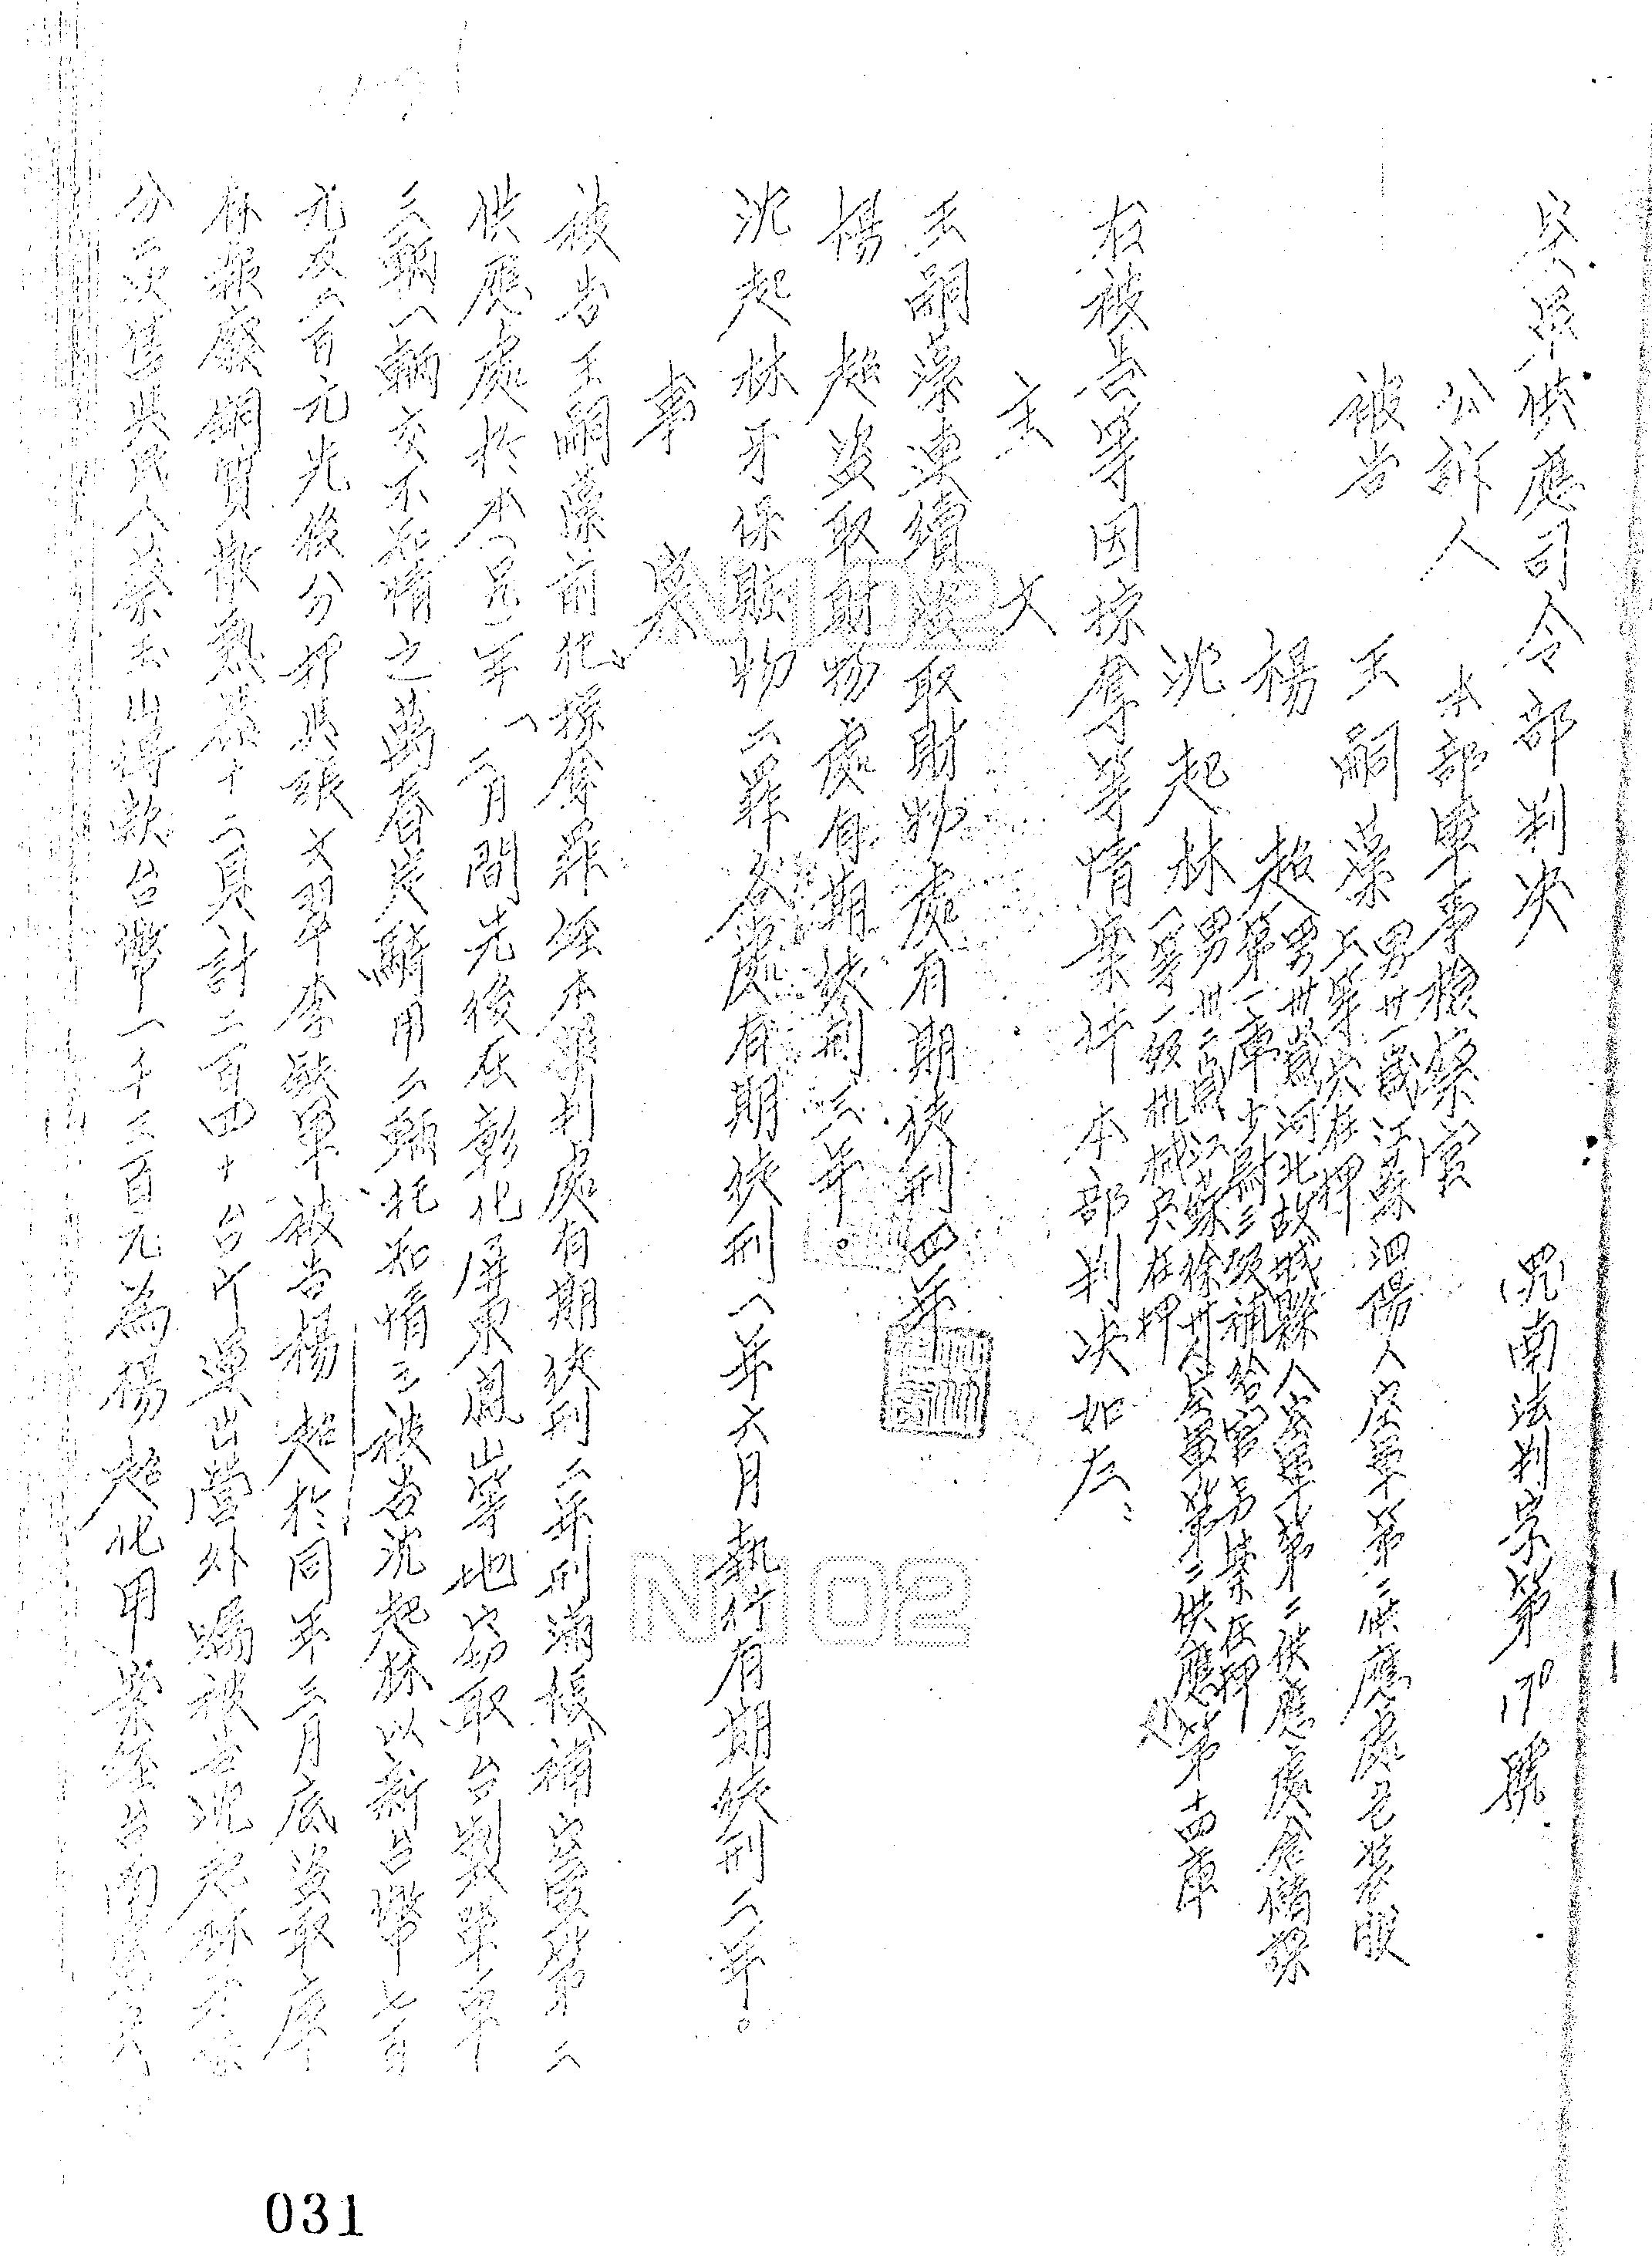 兵工供應司令部判決
南法判字第170號
公訴人 本部軍事檢察官
被告 王嗣藻 男卅一歲江蘇泗陽人空軍第二供應處
上等兵在押
楊超 男卅歲河北故城縣人空軍第二供應處倉儲課
第一庫少尉三級補給官另案在押
沈起林 男卅二歲江蘇徐州人空軍第二供應處第十四庫
一等一級機械兵在押
右被告等因掠奪等情案件本部判決如左：
主文
王嗣藻連續竊取財物處有期徒刑四年
楊超盜取財物處有期徒刑三年。
沈起林牙保贓物二罪各處有期徒刑一年六月執行有期徒刑二年。
事實
被告王嗣藻前犯掠奪罪經本部判處有期徒刑二年刑滿後補空軍第二
供應處於本(四二)年一、二月間先後在彰化屏東鳳山等地竊取台製單車
三輛一輛交不知情之萬春炭騎用二輛托知情之被告沈起林以新台幣七百
元及六百元先後分押與張文翠李毓軍被告楊超於同年三月底盜取庫
存報廢銅質散熱器十二具計二百四十台斤運出營外囑被告沈起林
分二次售與民人蔡去山得款台幣一千五百元為楊超化用案經台南憲兵
N102
N102
031